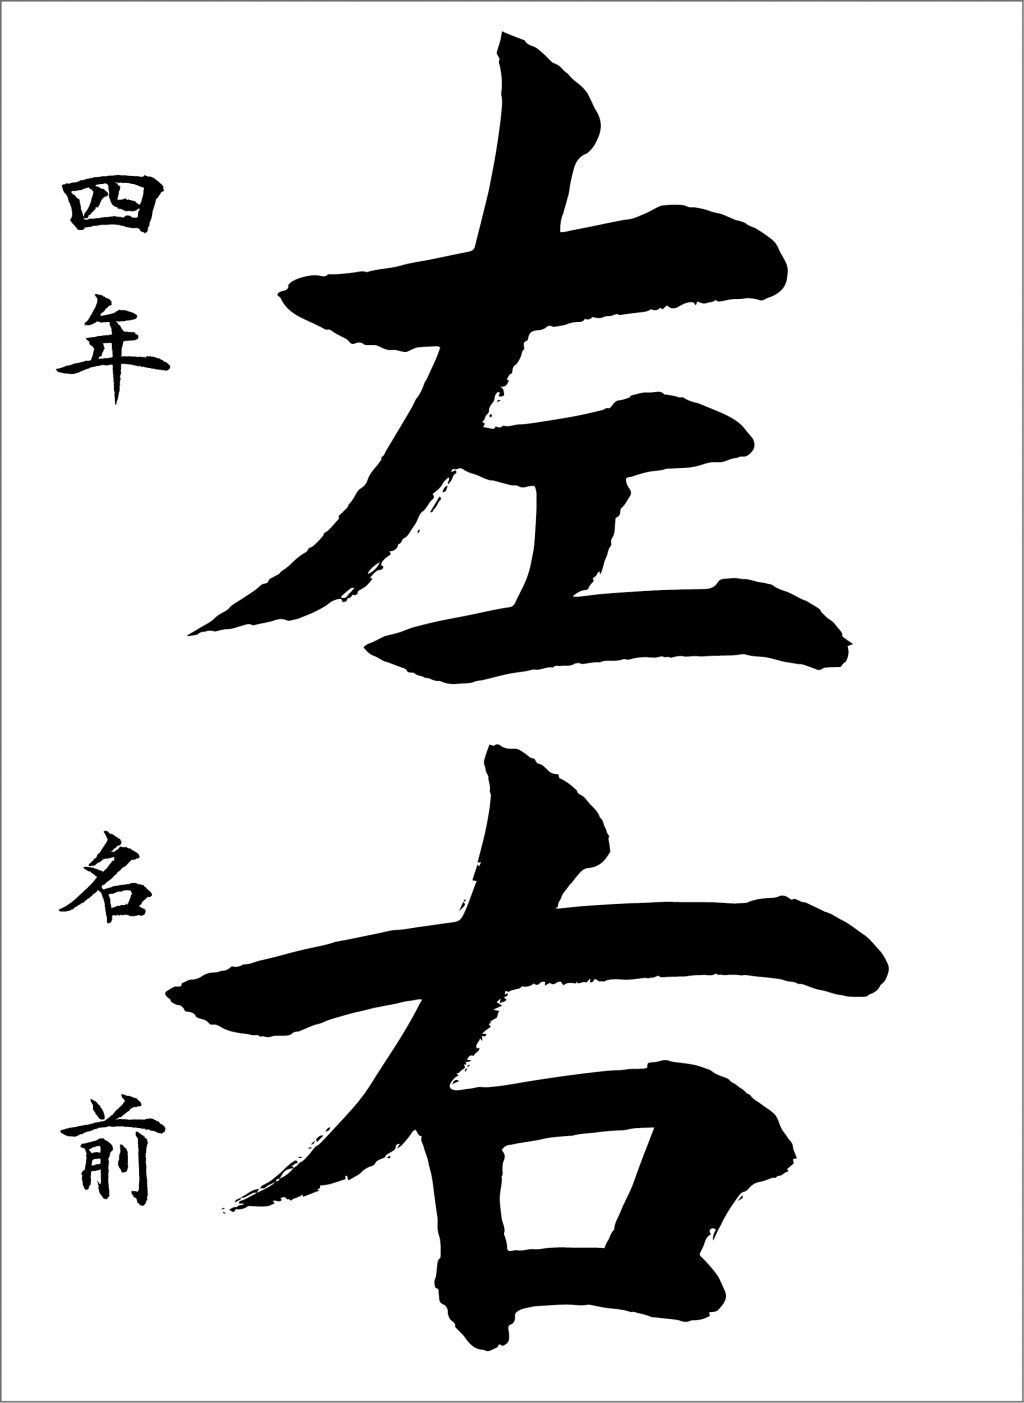 左右
四年 名前